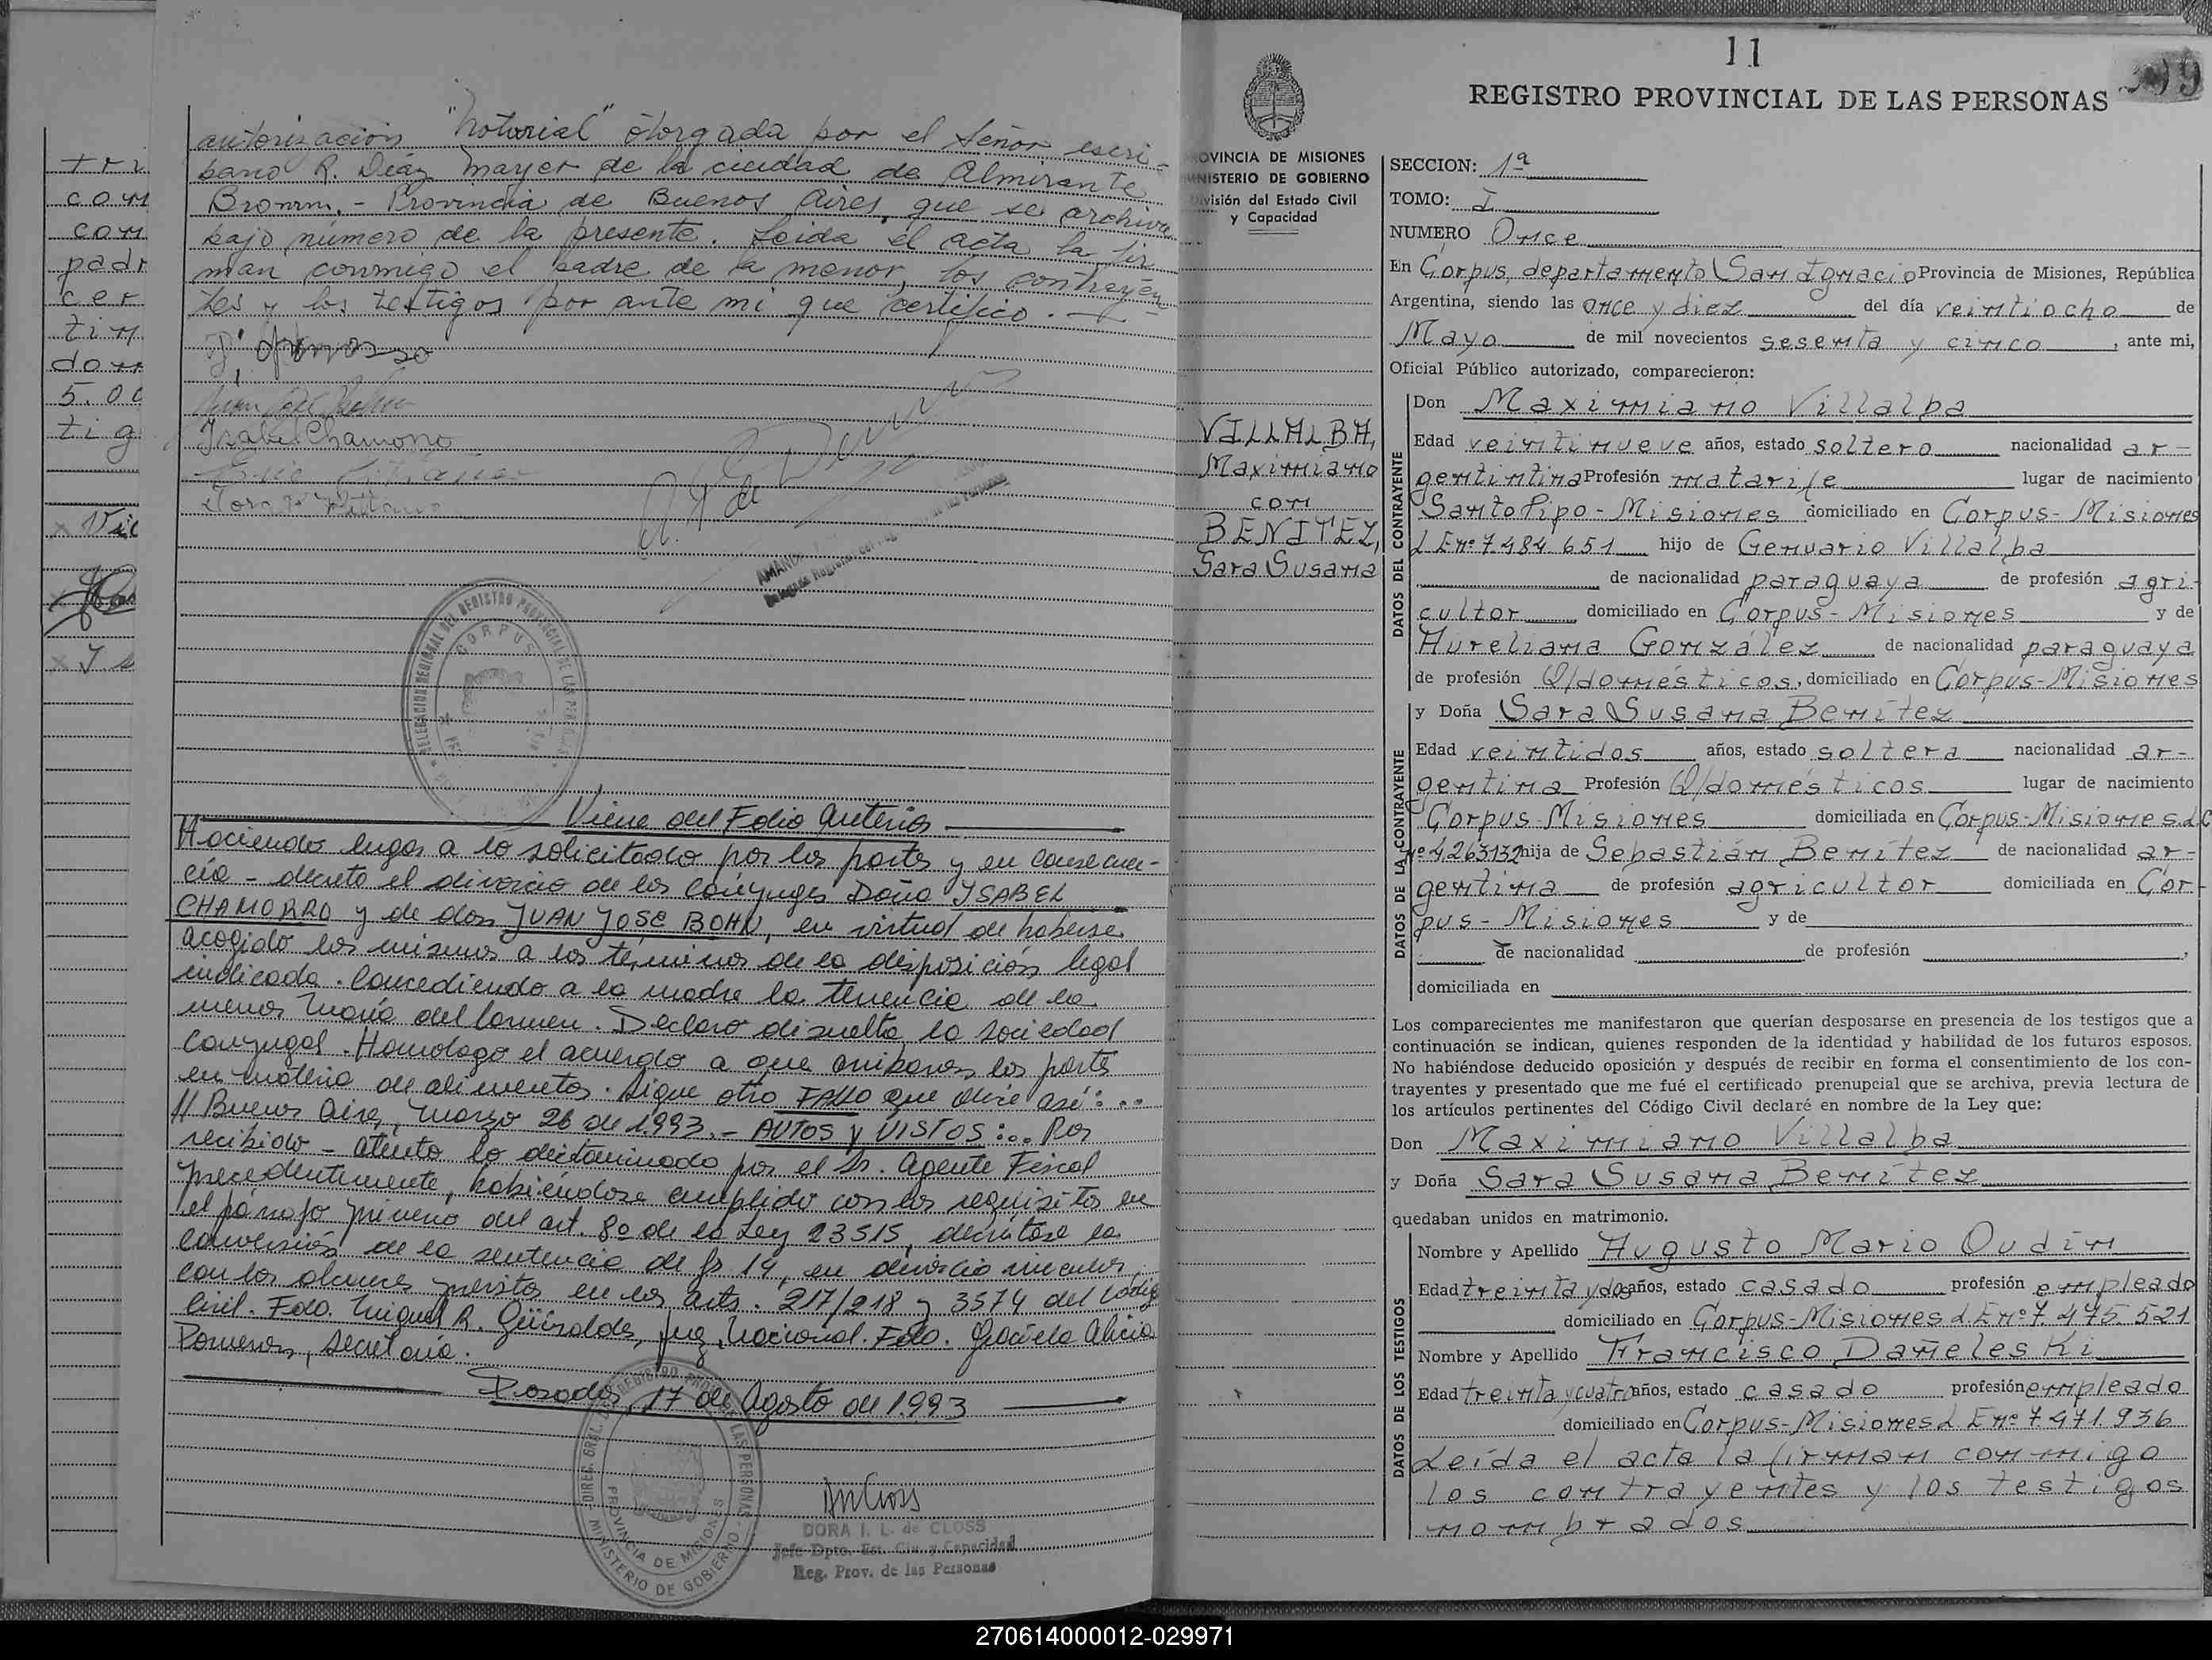 autorización "notarial" otorgada por el Señor escri-
bano R. Díaz Mayer de la ciudad de Almirante
Brown. - Provincia de Buenos Aires, que se archiva
bajo número de la presente. Leida el acta la fir
man conmigo el padre de la menor, los contrayen
tes y los testigos por ante mi que certifico. -
Isabel Chamorro
AMANDA
DELEGACION REGIONAL DEL REGISTRO PROVINCIAL DE LAS PERSONAS
CORPUS
Viene del Folio anterior
Haciendo lugar a lo solicitado por las partes y en consecuen-
cia - decreto el divorcio de los cónyuges Doña YSABEL
CHAMORRO y de don JUAN JOSE BOHN, en virtud de haberse
acogido los mismos a los términos de la disposición legal
indicada. Concediendo a la madre la tenencia de la
menor María del Carmen. Declaro disuelta la sociedad
conyugal. Homologo el acuerdo a que arribaron las partes
en materia de alimentos. Sigue otro FALLO que dice así: ...
// Buenos Aires, marzo 26 de 1.993. - AUTOS y VISTOS:... Por
recibido - atento lo dictaminado por el Sr. Agente Fiscal
precedentemente, habiéndose cumplido con los requisitos en
el párrafo primero del art. 8º de la Ley 23515, decrétase la
conversión de la sentencia de fs 14, en divorcio vincular
con los alcances previstos en los arts. 217/218 y 3574 del Código
Civil. Fdo. Miguel R. Güiraldes, Juez Nacional. Fdo. Graciela Alicia
secretaria.
Posadas, 17 de Agosto de 1.993
DIREC. GRAL. DEL REGISTRO PROV. DE LAS PERSONAS
PROVINCIA DE MISIONES
MINISTERIO DE GOBIERNO
DORA I. L. de CLOSS
Jefe Dpto. Est. Civ. y Capacidad
Reg. Prov. de las Personas
11
REGISTRO PROVINCIAL DE LAS PERSONAS
OVINCIA DE MISIONES
NISTERIO DE GOBIERNO
visión del Estado Civil
y Capacidad
VILLALBA,
Maximiano
con
BENITEZ,
Sara Susana
SECCION: 1ª
TOMO: I
NUMERO Once
En Corpus, departamento San Ignacio Provincia de Misiones, República
Argentina, siendo las once y diez del día veintiocho de
Mayo de mil novecientos sesenta y cinco, ante mi,
Oficial Público autorizado, comparecieron:
DATOS DEL CONTRAYENTE
Don Maximiano Villalba
Edad veintinueve años, estado soltero nacionalidad ar-
gentintina Profesión matarife lugar de nacimiento
Santo Pipo - Misiones domiciliado en Corpus - Misiones
L E nº 7.484.651 hijo de Genuario Villalba
de nacionalidad paraguaya de profesión agri-
cultor domiciliado en Corpus - Misiones y de
Aureliana González de nacionalidad paraguaya
de profesión Q/domésticos, domiciliado en Corpus-Misiones
DATOS DE LA CONTRAYENTE
y Doña Sara Susana Benítez
Edad veintidos años, estado soltera nacionalidad ar-
gentina Profesión Q/domésticos lugar de nacimiento
Corpus-Misiones domiciliada en Corpus-Misiones LC
nº 4.263.132 hija de Sebastián Benítez de nacionalidad ar-
gentina de profesión agricultor domiciliada en Cor-
pus - Misiones y de
de nacionalidad de profesión ,
domiciliada en
Los comparecientes me manifestaron que querían desposarse en presencia de los testigos que a
continuación se indican, quienes responden de la identidad y habilidad de los futuros esposos.
No habiéndose deducido oposición y después de recibir en forma el consentimiento de los con-
trayentes y presentado que me fué el certificado prenupcial que se archiva, previa lectura de
los artículos pertinentes del Código Civil declaré en nombre de la Ley que:
Don Maximiano Villalba
y Doña Sara Susana Benítez
quedaban unidos en matrimonio.
DATOS DE LOS TESTIGOS
Nombre y Apellido Augusto Mario Oudin
Edad treinta y dos años, estado casado profesión empleado
domiciliado en Corpus-Misiones L.E nº 7.475.521
Nombre y Apellido Francisco Dañeleski
Edad treinta y cuatro años, estado casado profesión empleado
domiciliado en Corpus-Misiones L E nº 7.471.936
Leída el acta la firman conmigo
los contrayentes y los testigos
nombrados
270614000012-029971